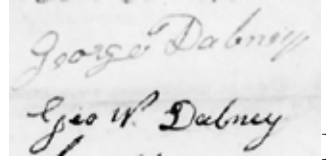 George Dabney
Geo W. Dabney